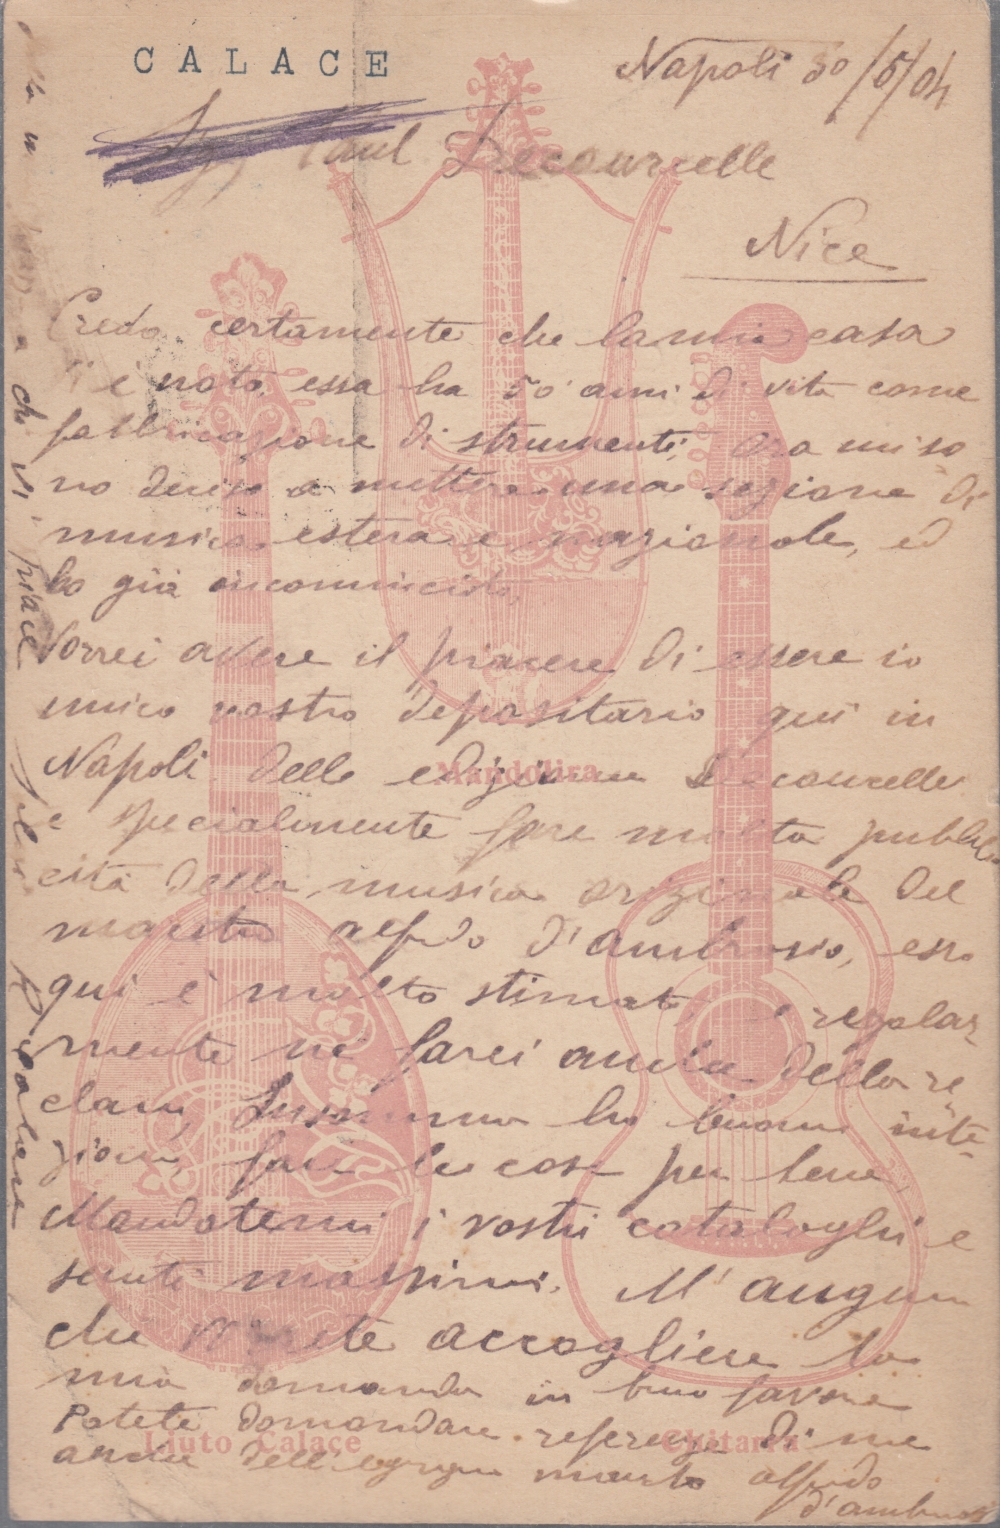 CALACE
Napoli 30/5/04
Paul Decourcelle
Nice
Credo certamente che la mia casa
è nota, essa ha 50 anni di vita come
fabbricazione di strumenti, ora mi so
no deciso a mettere una sezione di
musica estera e nazionale, ed
ho già incominciato,
Vorrei avere il piacere di essere io
unico vostro depositario qui in
Napoli delle edizioni Decourcelle
e specialmente fare molta pubbli
cità della musica originale del
maestro alfredo d'ambrosio, esso
qui è molto stimato, e regolar
mente ne farei anche della re
clam, Insomma ho buone inte
zioni, fare le cose per bene,
Mandatemi i vostri cataloghi e
sconti massimi. M'auguro
che vorrete accogliere la
mia domanda in buo favore
Potete domandare referenze di me
anche dell'egregio maestro alfredo
d'ambrosio
a che vi piace
Calace
Mandolira
Liuto Calace
Chitarra